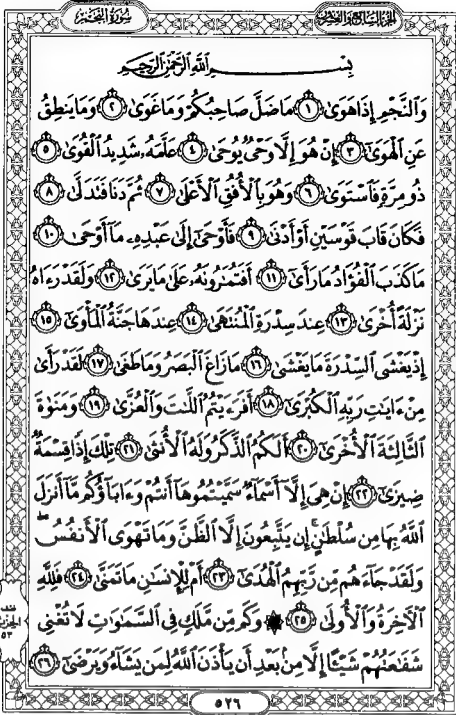 سُورَةُ النَّجْمِ
الجزء السابع والعشرون
بِسْمِ اللَّهِ الرَّحْمَٰنِ الرَّحِيمِ
وَالنَّجْمِ إِذَا هَوَىٰ ١ مَا ضَلَّ صَاحِبُكُمْ وَمَا غَوَىٰ ٢ وَمَا يَنطِقُ
عَنِ الْهَوَىٰ ٣ إِنْ هُوَ إِلَّا وَحْيٌ يُوحَىٰ ٤ عَلَّمَهُ شَدِيدُ الْقُوَىٰ ٥
ذُو مِرَّةٍ فَاسْتَوَىٰ ٦ وَهُوَ بِالْأُفُقِ الْأَعْلَىٰ ٧ ثُمَّ دَنَا فَتَدَلَّىٰ ٨
فَكَانَ قَابَ قَوْسَيْنِ أَوْ أَدْنَىٰ ٩ فَأَوْحَىٰ إِلَىٰ عَبْدِهِ مَا أَوْحَىٰ ١٠
مَا كَذَبَ الْفُؤَادُ مَا رَأَىٰ ١١ أَفَتُمَارُونَهُ عَلَىٰ مَا يَرَىٰ ١٢ وَلَقَدْ رَءَاهُ
نَزْلَةً أُخْرَىٰ ١٣ عِندَ سِدْرَةِ الْمُنتَهَىٰ ١٤ عِندَهَا جَنَّةُ الْمَأْوَىٰ ١٥
إِذْ يَغْشَى السِّدْرَةَ مَا يَغْشَىٰ ١٦ مَا زَاغَ الْبَصَرُ وَمَا طَغَىٰ ١٧ لَقَدْ رَأَىٰ
مِنْ ءَايَاتِ رَبِّهِ الْكُبْرَىٰ ١٨ أَفَرَءَيْتُمُ اللَّاتَ وَالْعُزَّىٰ ١٩ وَمَنَوٰةَ
الثَّالِثَةَ الْأُخْرَىٰ ٢٠ أَلَكُمُ الذَّكَرُ وَلَهُ الْأُنثَىٰ ٢١ تِلْكَ إِذًا قِسْمَةٌ
ضِيزَىٰ ٢٢ إِنْ هِيَ إِلَّا أَسْمَاءٌ سَمَّيْتُمُوهَا أَنتُمْ وَءَابَاؤُكُم مَّا أَنزَلَ
اللَّهُ بِهَا مِن سُلْطَٰنٍ ۚ إِن يَتَّبِعُونَ إِلَّا الظَّنَّ وَمَا تَهْوَى الْأَنفُسُ ۖ
وَلَقَدْ جَاءَهُم مِّن رَّبِّهِمُ الْهُدَىٰ ٢٣ أَمْ لِلْإِنسَٰنِ مَا تَمَنَّىٰ ٢٤ فَلِلَّهِ
الْآخِرَةُ وَالْأُولَىٰ ٢٥ ۞ وَكَم مِّن مَّلَكٍ فِي السَّمَٰوَاتِ لَا تُغْنِي
شَفَٰعَتُهُمْ شَيْئًا إِلَّا مِن بَعْدِ أَن يَأْذَنَ اللَّهُ لِمَن يَشَاءُ وَيَرْضَىٰ ٢٦
الحزب
٥٣
٥٢٦